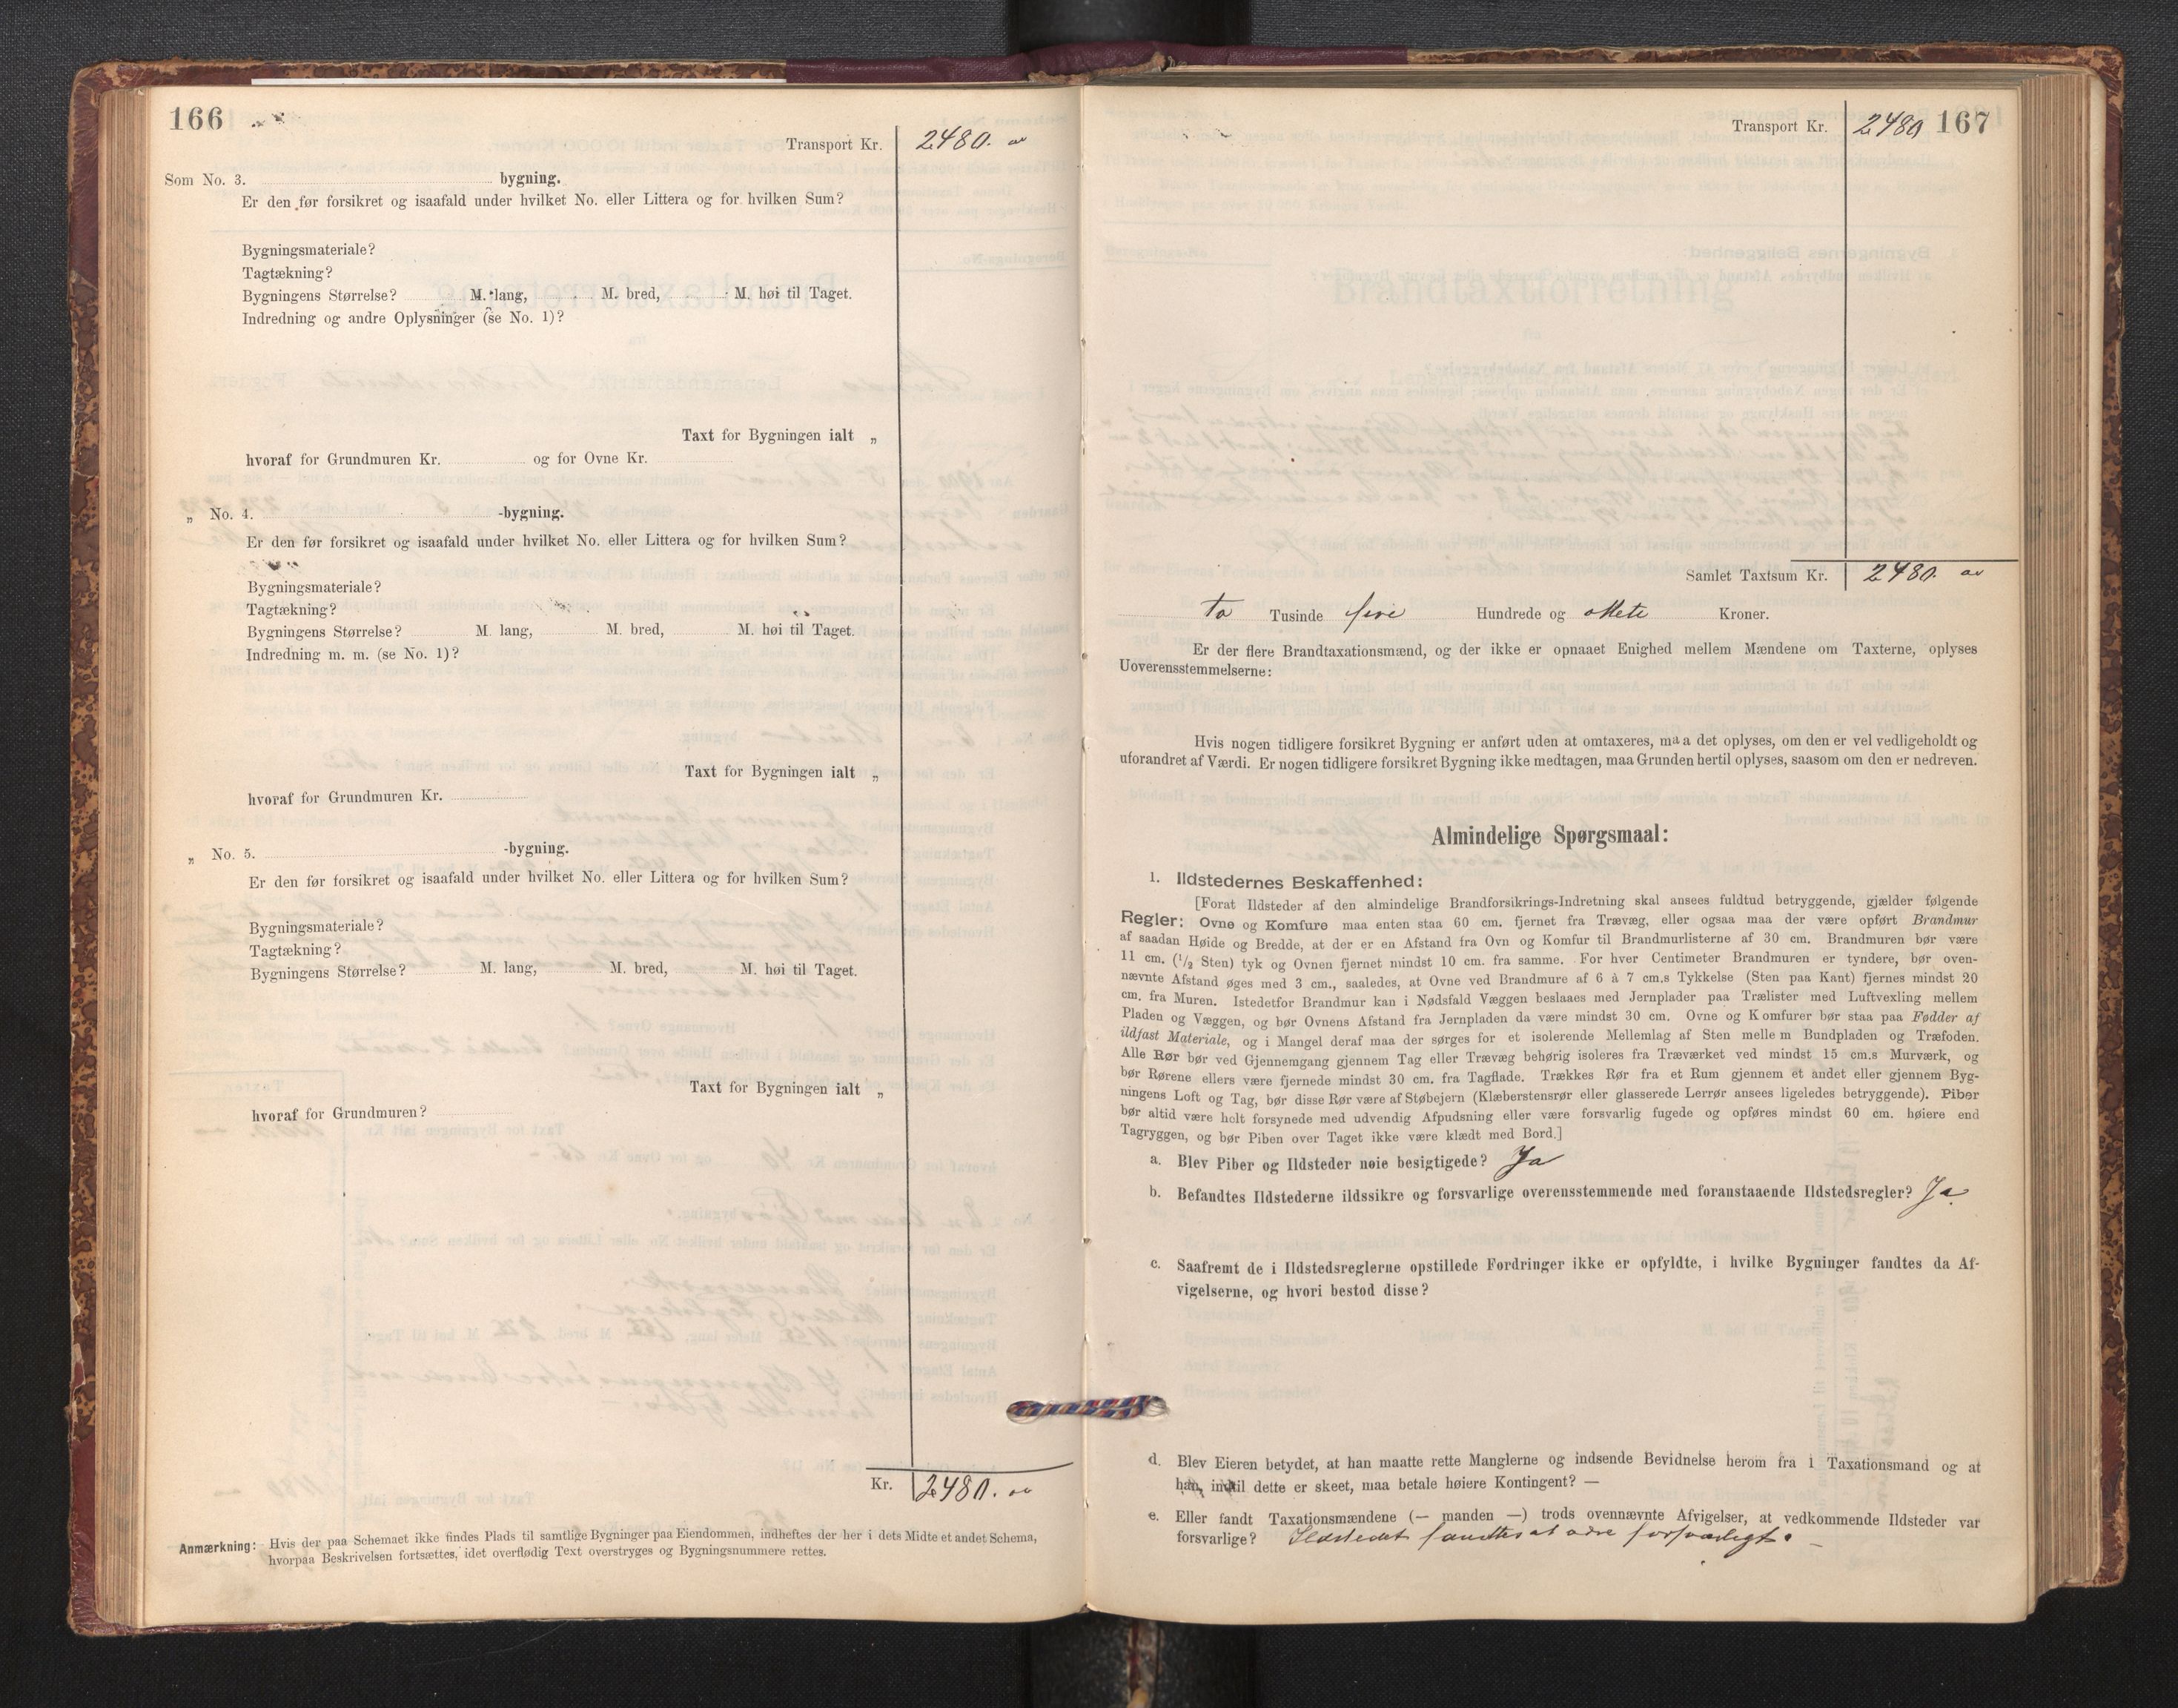 166
Transport Kr. 2480. "
Som No. 3. bygning.
Er den før forsikret og isaafald under hvilket No. eller Littera og for hvilken Sum?
Bygningsmateriale?
Tagtækning?
Bygningens Størrelse? M. lang, M. bred, M. høi til Taget.
Indredning og andre Oplysninger (se No. 1)?
Taxt for Bygningen ialt „
hvoraf for Grundmuren Kr. og for Ovne Kr.
„ No. 4. -bygning.
Er den før forsikret og isaafald under hvilket No. eller Littera og for hvilken Sum?
Bygningsmateriale?
Tagtækning?
Bygningens Størrelse? M. lang, M. bred, M. høi til Taget.
Indredning m. m. (se No. 1)?
Taxt for Bygningen ialt „
hvoraf for Grundmuren Kr.
„ No. 5. -bygning.
Er den før forsikret og isaafald under hvilket No. eller Littera og for hvilken Sum?
Bygningsmateriale?
Tagtækning?
Bygningens Størrelse? M. lang, M. bred, M. høi til Taget.
Taxt for Bygningen ialt „
hvoraf for Grundmuren?
Kr. 2480.
Anmærkning: Hvis der paa Schemaet ikke findes Plads til samtlige Bygninger paa Eiendommen, indheftes der her i dets Midte et andet Schema,
hvorpaa Beskrivelsen fortsættes, idet overflødig Text overstryges og Bygningsnummere rettes.
Transport Kr. 2480 167
Samlet Taxtsum Kr. 2480.
to Tusinde fire Hundrede og ottete Kroner.
Er der flere Brandtaxationsmænd, og der ikke er opnaaet Enighed mellem Mændene om Taxterne, oplyses
Uoverensstemmelserne:
Hvis nogen tidligere forsikret Bygning er anført uden at omtaxeres, maa det oplyses, om den er vel vedligeholdt og
uforandret af Værdi. Er nogen tidligere forsikret Bygning ikke medtagen, maa Grunden hertil oplyses, saasom om den er nedreven.
Almindelige Spørgsmaal:
1. Ildstedernes Beskaffenhed:
[Forat Ildsteder af den almindelige Brandforsikrings-Indretning skal ansees fuldtud betryggende, gjælder følgende
Regler: Ovne og Komfure maa enten staa 60 cm. fjernet fra Trævæg, eller ogsaa maa der være opført Brandmur
af saadan Høide og Bredde, at der er en Afstand fra Ovn og Komfur til Brandmurlisterne af 30 cm. Brandmuren bør være
11 cm. (1/2 Sten) tyk og Ovnen fjernet mindst 10 cm. fra samme. For hver Centimeter Brandmuren er tyndere, bør oven-
nævnte Afstand øges med 3 cm., saaledes, at Ovne ved Brandmure af 6 à 7 cm.s Tykkelse (Sten paa Kant) fjernes mindst 20
cm. fra Muren. Istedetfor Brandmur kan i Nødsfald Væggen beslaaes med Jernplader paa Trælister med Luftvexling mellem
Pladen og Væggen, og bør Ovnens Afstand fra Jernpladen da være mindst 30 cm. Ovne og Komfurer bør staa paa Fødder af
ildfast Materiale, og i Mangel deraf maa der sørges for et isolerende Mellemlag af Sten mellem Bundpladen og Træfoden.
Alle Rør bør ved Gjennemgang gjennem Tag eller Trævæg behørig isoleres fra Træværket ved mindst 15 cm.s Murværk, og
bør Rørene ellers være fjernede mindst 30 cm. fra Tagflade. Trækkes Rør fra et Rum gjennem et andet eller gjennem Byg-
ningens Loft og Tag, bør disse Rør være af Støbejern (Klæberstensrør eller glasserede Lerrør ansees ligeledes betryggende). Piber
bør altid være helt forsynede med udvendig Afpudsning eller være forsvarlig fugede og opføres mindst 60 cm. høiere end
Tagryggen, og bør Piben over Taget ikke være klædt med Bord.]
a. Blev Piber og Ildsteder nøie besigtigede? Ja
b. Befandtes Ildstederne ildssikre og forsvarlige overensstemmende med foranstaaende Ildstedsregler? Ja.
c. Saafremt de i Ildstedsreglerne opstillede Fordringer ikke er opfyldte, i hvilke Bygninger fandtes da Af-
vigelserne, og hvori bestod disse?
d. Blev Eieren betydet, at han maatte rette Manglerne og indsende Bevidnelse herom fra 1 Taxationsmand og at
han, indtil dette er skeet, maa betale høiere Kontingent? —
e. Eller fandt Taxationsmændene (— manden —) trods ovennævnte Afvigelser, at vedkommende Ildsteder var
forsvarlige? Ildstedet fandtes at være forsvarligt. –